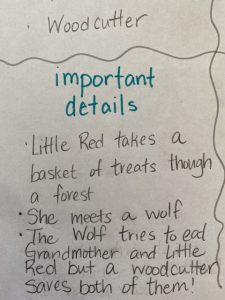 · Woodcutter
important
details
· Little Red takes a
basket of treats though
a forest
· She meets a wolf
· The Wolf tries to eat
Grandmother and Little
Red but a woodcutter
saves both of them!